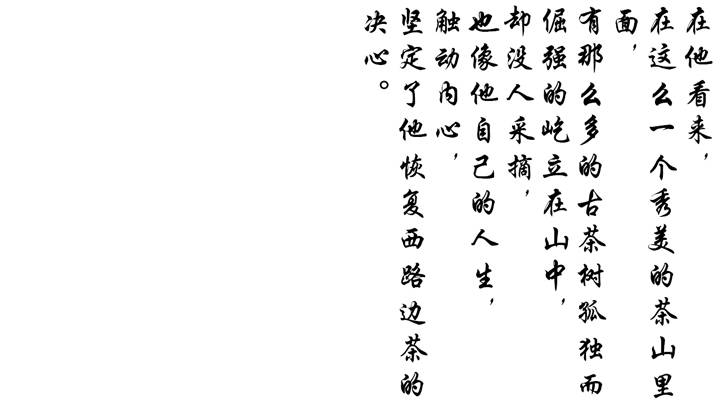 在他看来，
在这么一个秀美的茶山里
面，
有那么多的古茶树孤独而
倔强的屹立在山中，
却没人采摘，
也像他自己的人生，
触动内心，
坚定了他恢复西路边茶的
决心。